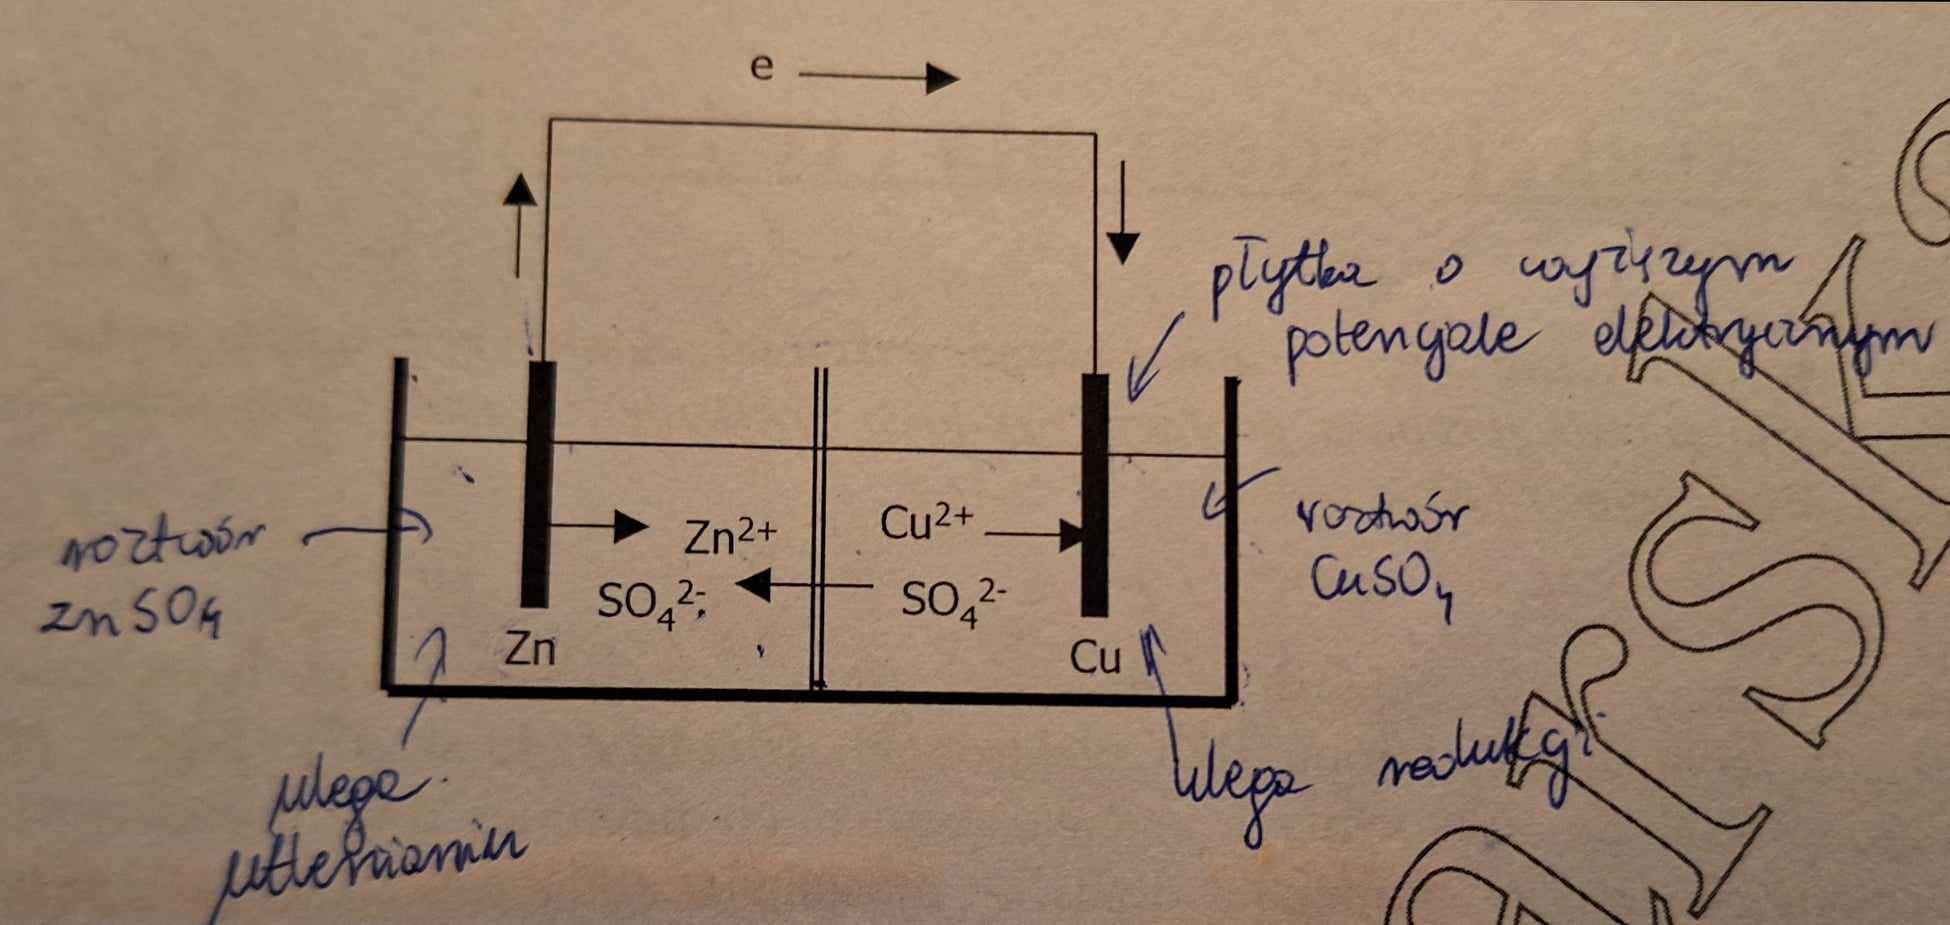 e
płytka o wyższym
potencjale elektrycznym
roztwór
ZnSO4
Zn2+
SO42-
Zn
Cu2+
SO42-
Cu
roztwór
CuSO4
ulega
utlenianiu
ulega redukcji